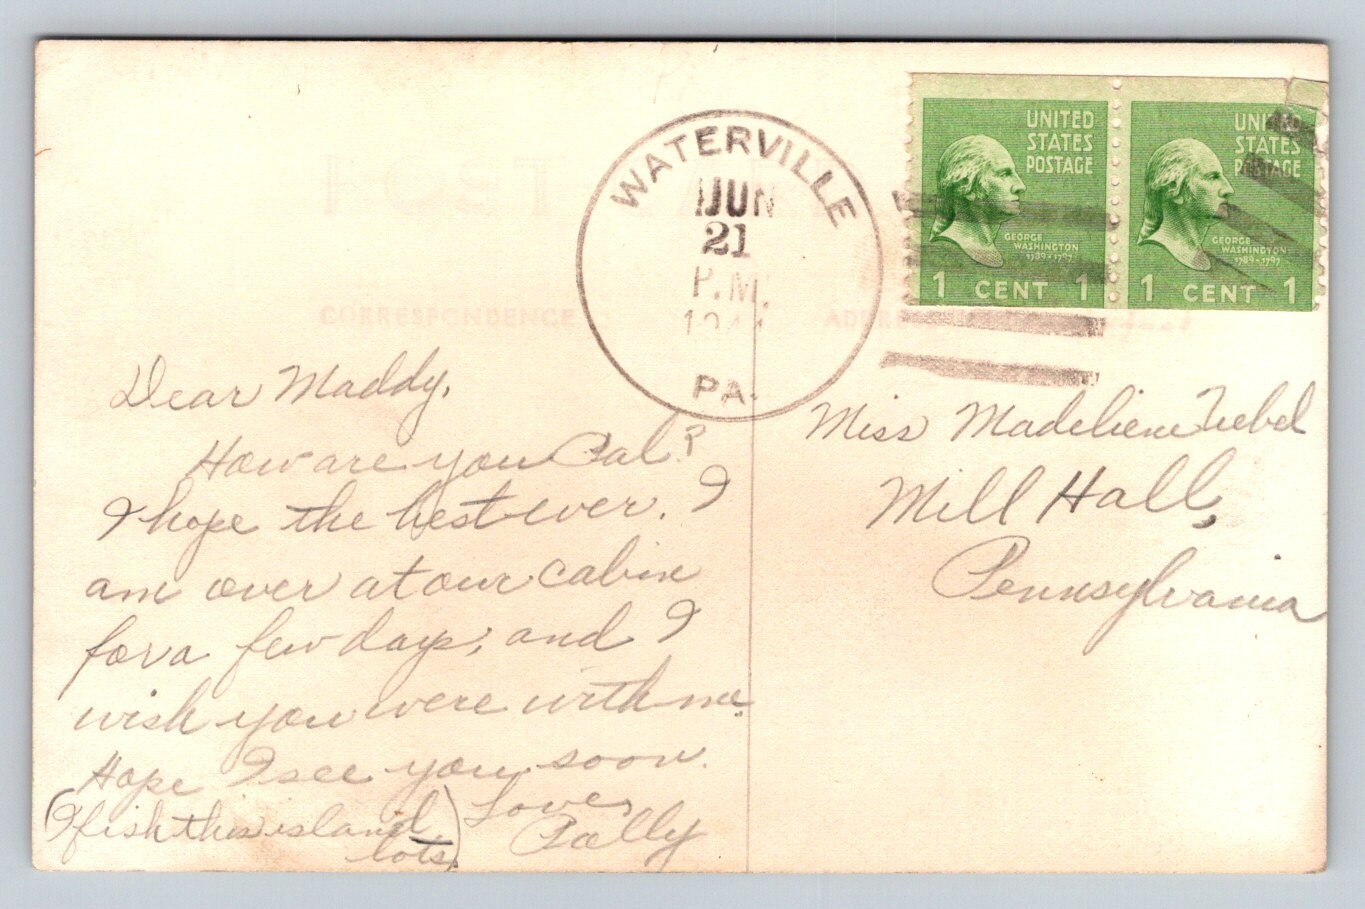 POST
CORRESPONDENCE
WATERVILLE
JUN
21
P.M.
PA.
UNITED
STATES
POSTAGE
GEORGE
WASHINGTON
1789-1797
1 CENT 1
UNITED
STATES
POSTAGE
GEORGE
WASHINGTON
1789-1797
1 CENT 1
Dear Maddy,
How are you Pal?
I hope the best ever. I
am over at our cabin
for a few days, and I
wish you were with me.
Hope I see you soon.
(I fish this island
lots.)
Love,
Pally
Miss Madeliene
Mill Hall,
Pennsylvania